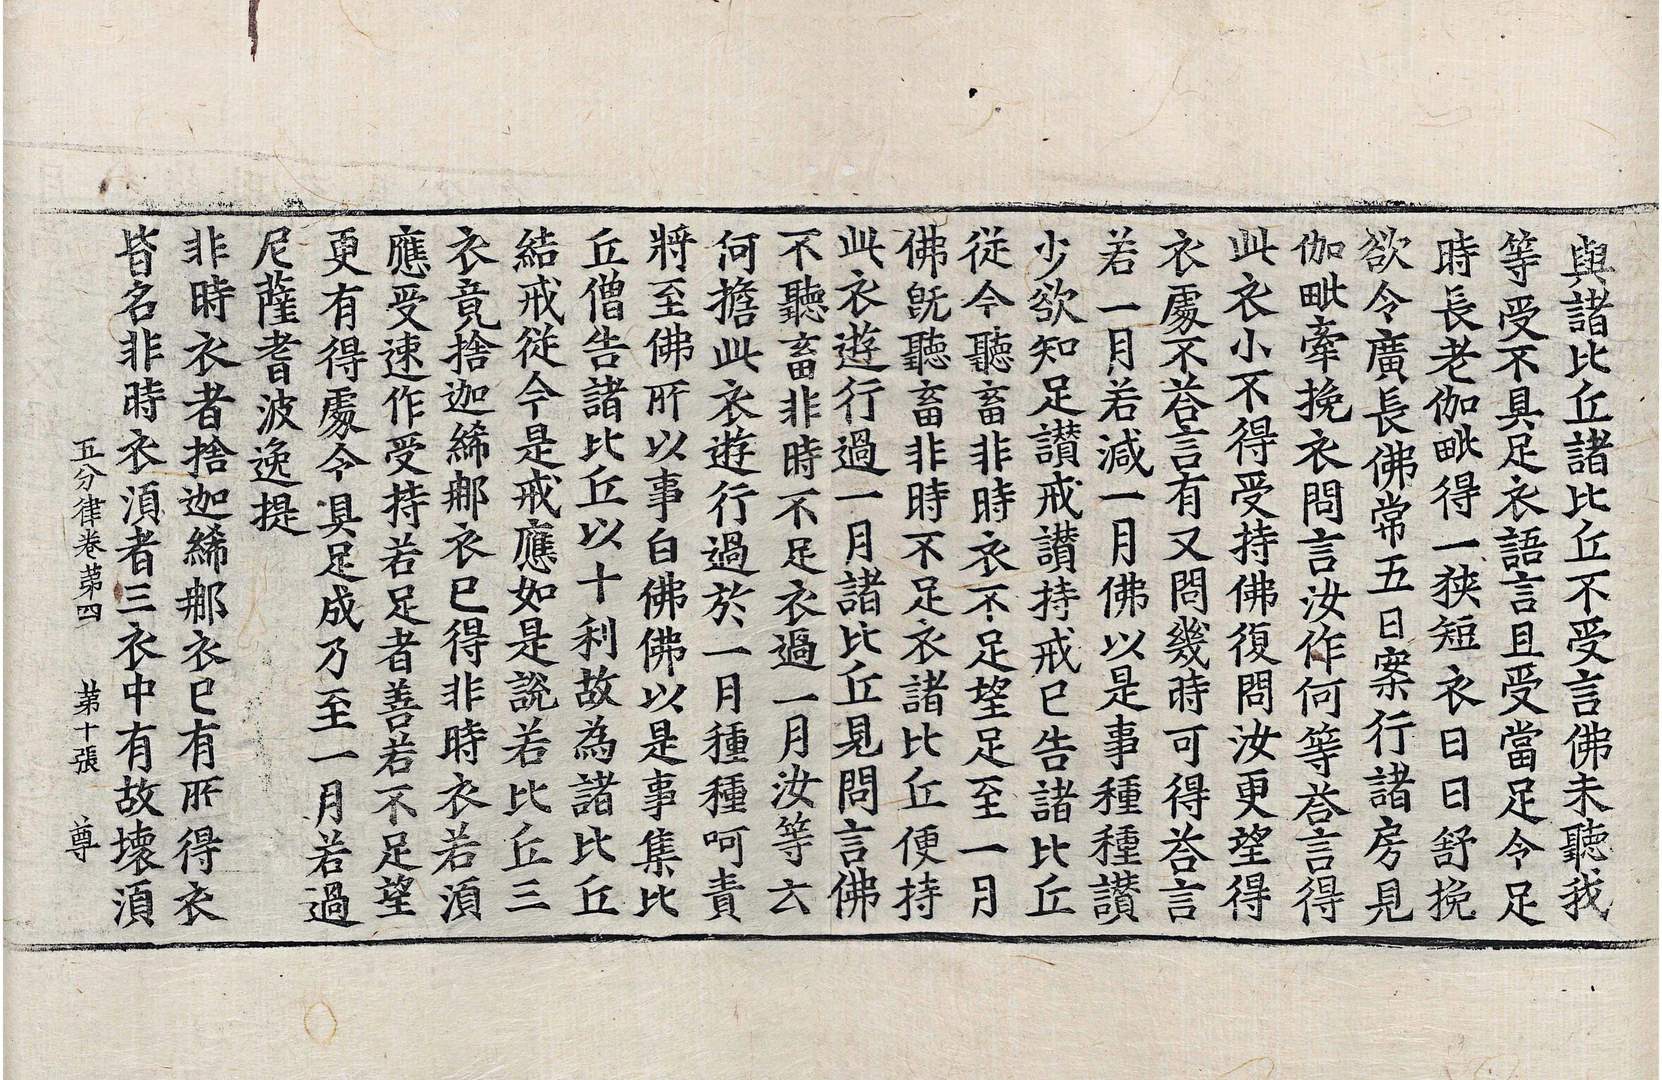 與諸比丘諸比丘不受言佛未聽我
等受不具足衣語言且受當足令足
時長老伽毗得一狹短衣日日舒挽
欲令廣長佛常五日案行諸房見
伽毗牽挽衣問言汝作何等荅言得
此衣小不得受持佛復問汝更望得
衣處不荅言有又問幾時可得荅言
若一月若減一月佛以是事種種讃
少欲知足讃戒讃持戒已告諸比丘
從今聽畜非時衣不足望足至一月
佛旣聽畜非時不足衣諸比丘便持
此衣遊行過一月諸比丘見問言佛
不聽畜非時不足衣過一月汝等云
何擔此衣遊行過於一月種種呵責
將至佛所以事白佛佛以是事集比
丘僧告諸比丘以十利故為諸比丘
結戒從今是戒應如是說若比丘三
衣竟捨迦絺那衣已得非時衣若湏
應受速作受持若足者善若不足望
更有得處令具足成乃至一月若過
尼薩耆波逸提
非時衣者捨迦絺那衣已有所得衣
皆名非時衣湏者三衣中有故壞湏
五分律卷苐四　苐十張　尊